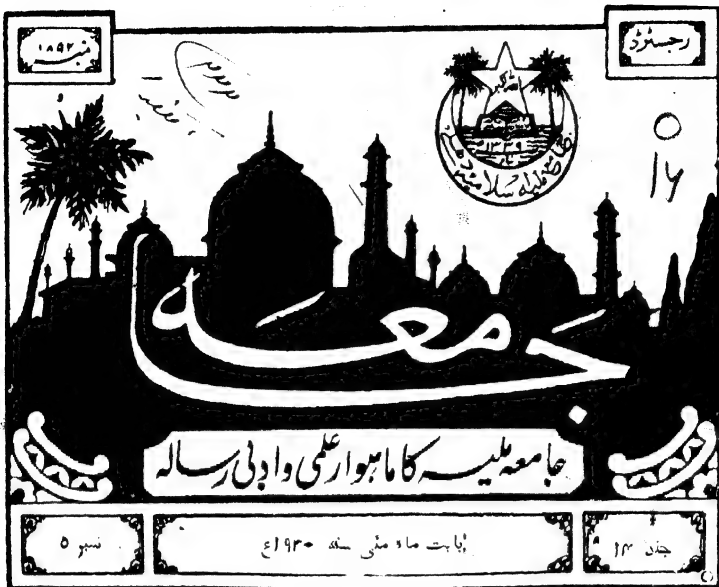 رجسٹرڈ نمبر ۱۸۹۲
اللہ اکبر
۱۳۳۹
جامعہ ملیہ اسلامیہ دہلی
۱۶
جامعہ
جامعہ ملیہ کا ماہوار علمی و ادبی رسالہ
جلد ۱۴ بابت ماہ مئی سنہ ۱۹۳۰ع نمبر ۵